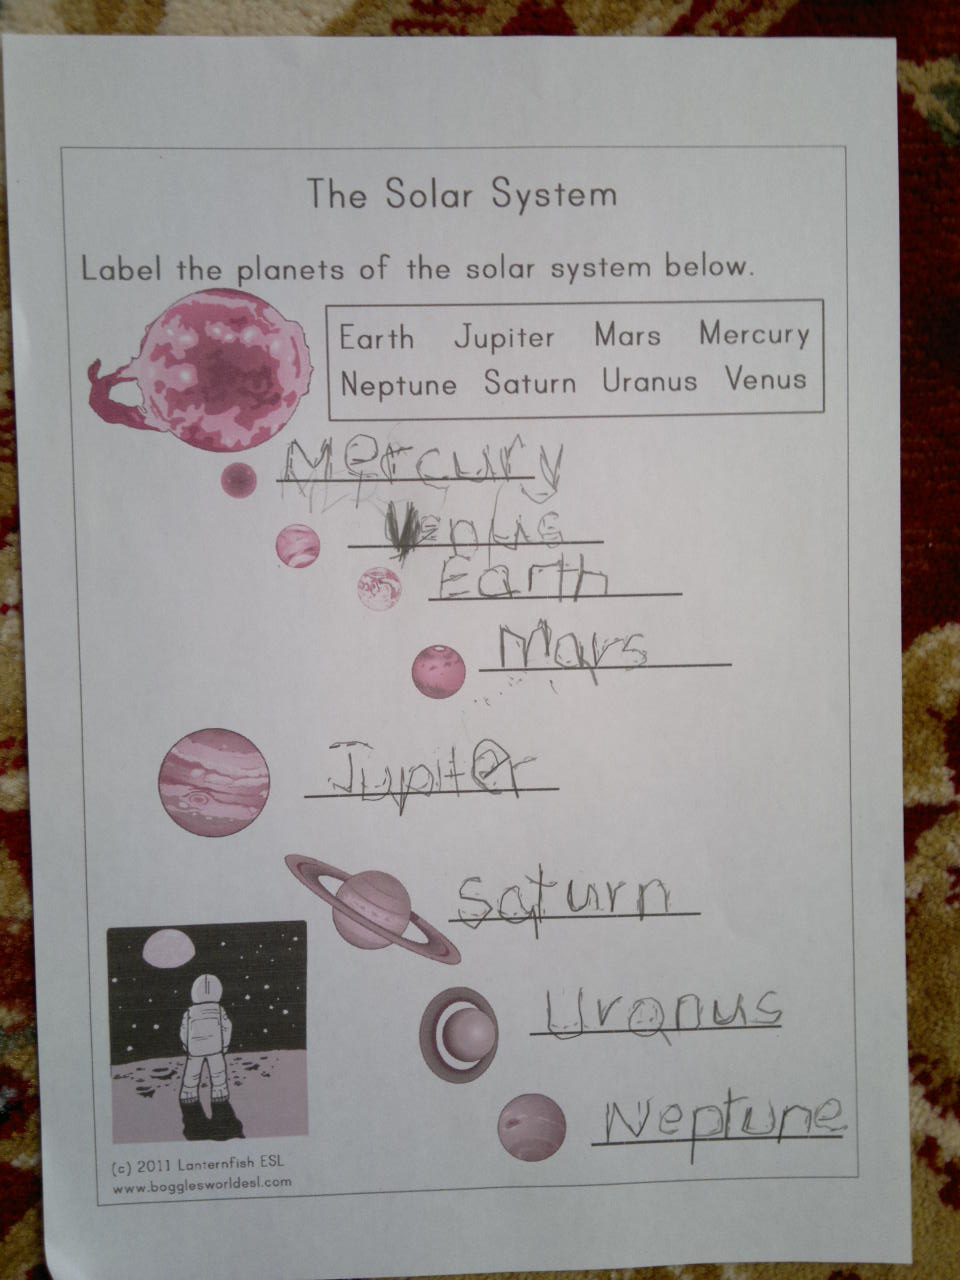 The Solar System
Label the planets of the solar system below.
Earth Jupiter Mars Mercury
Neptune Saturn Uranus Venus
Mercury
Venus
Earth
Mars
Jupiter
Saturn
Uranus
Neptune
(c) 2011 Lanternfish ESL
www.bogglesworldesl.com